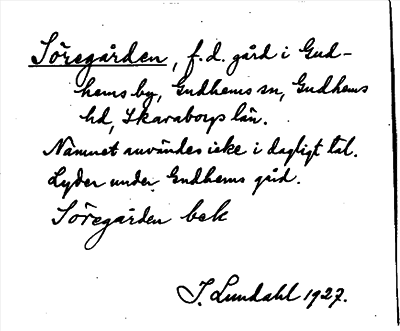 Söregården, f.d. gård i Gud-
hems by, Gudhems sn, Gudhems
hd, Skaraborgs län.
Namnet användes icke i dagligt tal.
Lyder under Gudhems gård.
Söregården bek
I. Lundahl 1927.